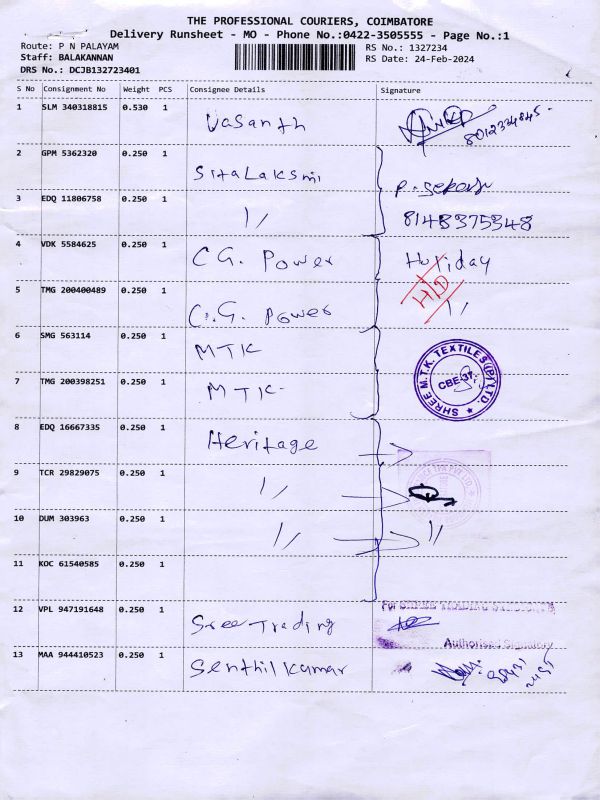 THE PROFESSIONAL COURIERS, COIMBATORE
Delivery Runsheet - MO - Phone No.:0422-3505555 - Page No.:1
Route: P N PALAYAM
RS No.: 1327234
Staff: BALAKANNAN
RS Date: 24-Feb-2024
DRS No.: DCJB132723401
S No Consignment No Weight PCS Consignee Details Signature
1 SLM 340318815 0.530 1 Vasanth
8012334845
2 GPM 5362320 0.250 1 SitaLaksmi P. Sekar
3 EDQ 11806758 0.250 1 1/ 8148375348
4 VDK 5584625 0.250 1 C G. Power Holiday
H/D
5 TMG 200400489 0.250 1 C.G. Power 1/
6 SMG 563114 0.250 1 MTK
SHREE M.T.K. TEXTILES (P) LTD.
CBE-37.
7 TMG 200398251 0.250 1 MTK-
8 EDQ 16667335 0.250 1 Heritage
9 TCR 29829075 0.250 1 1/
10 DUM 303963 0.250 1 1/ 1/
11 KOC 61540585 0.250 1
12 VPL 947191648 0.250 1 Sree Trading
For SHREE TRADING
Authorised Signatory
13 MAA 944410523 0.250 1 Senthil Kumar